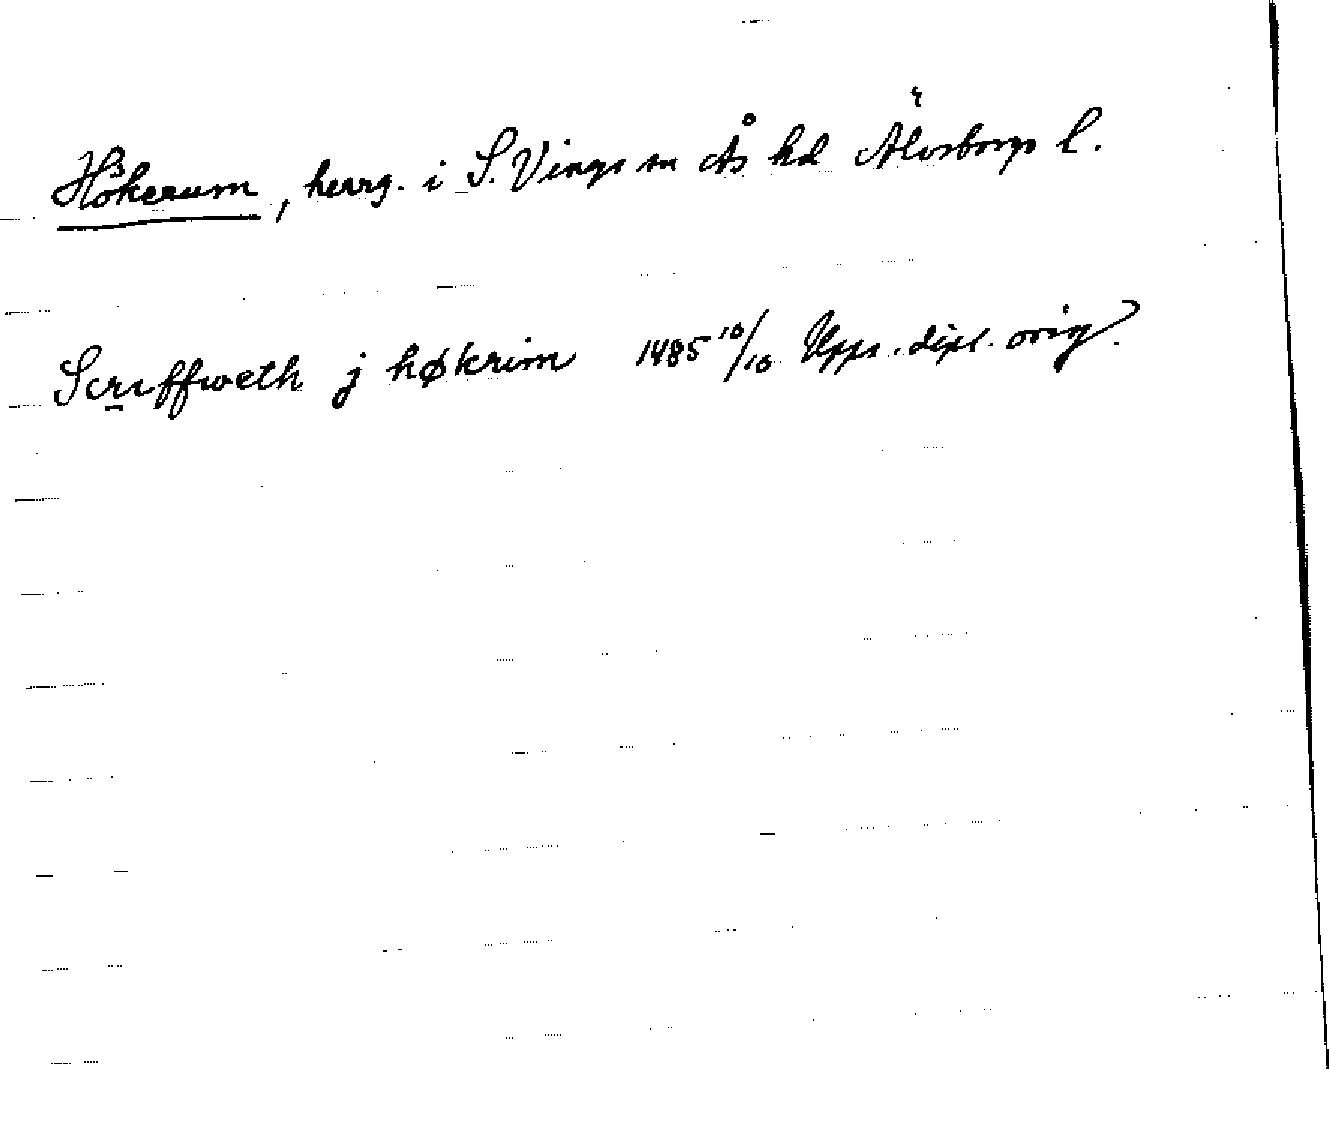 Hökerum, herrg. i S. Vings sn Ås hd Älvsborgs l.
Scriffweth j høkrim 1485 10/10 Upps. dipl. orig.